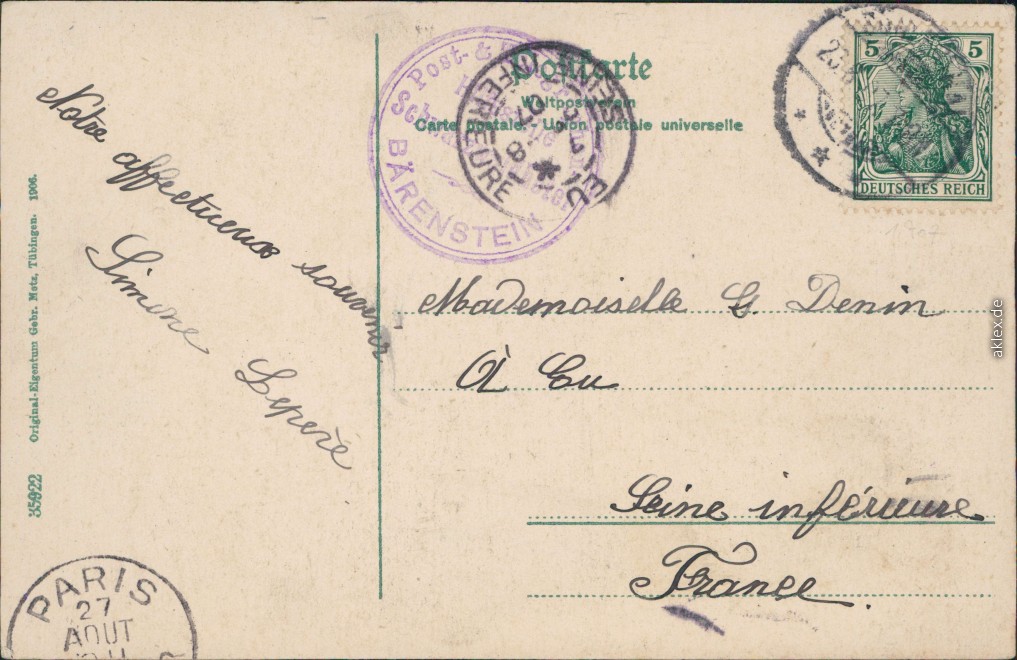 Postkarte
Weltpostverein
Carte postale. - Union postale universelle
Post-&
BÄRENSTEIN
EU
SEINE INFERIEURE
5 5
DEUTSCHES REICH
1907
Notre affectueux souvenir
Simone Leperè
Mademoiselle G. Denin
À Eu
Seine inférieure
France.
Original-Eigentum Gebr. Metz, Tübingen. 1906.
35922
PARIS
27
AOUT
aklex.de